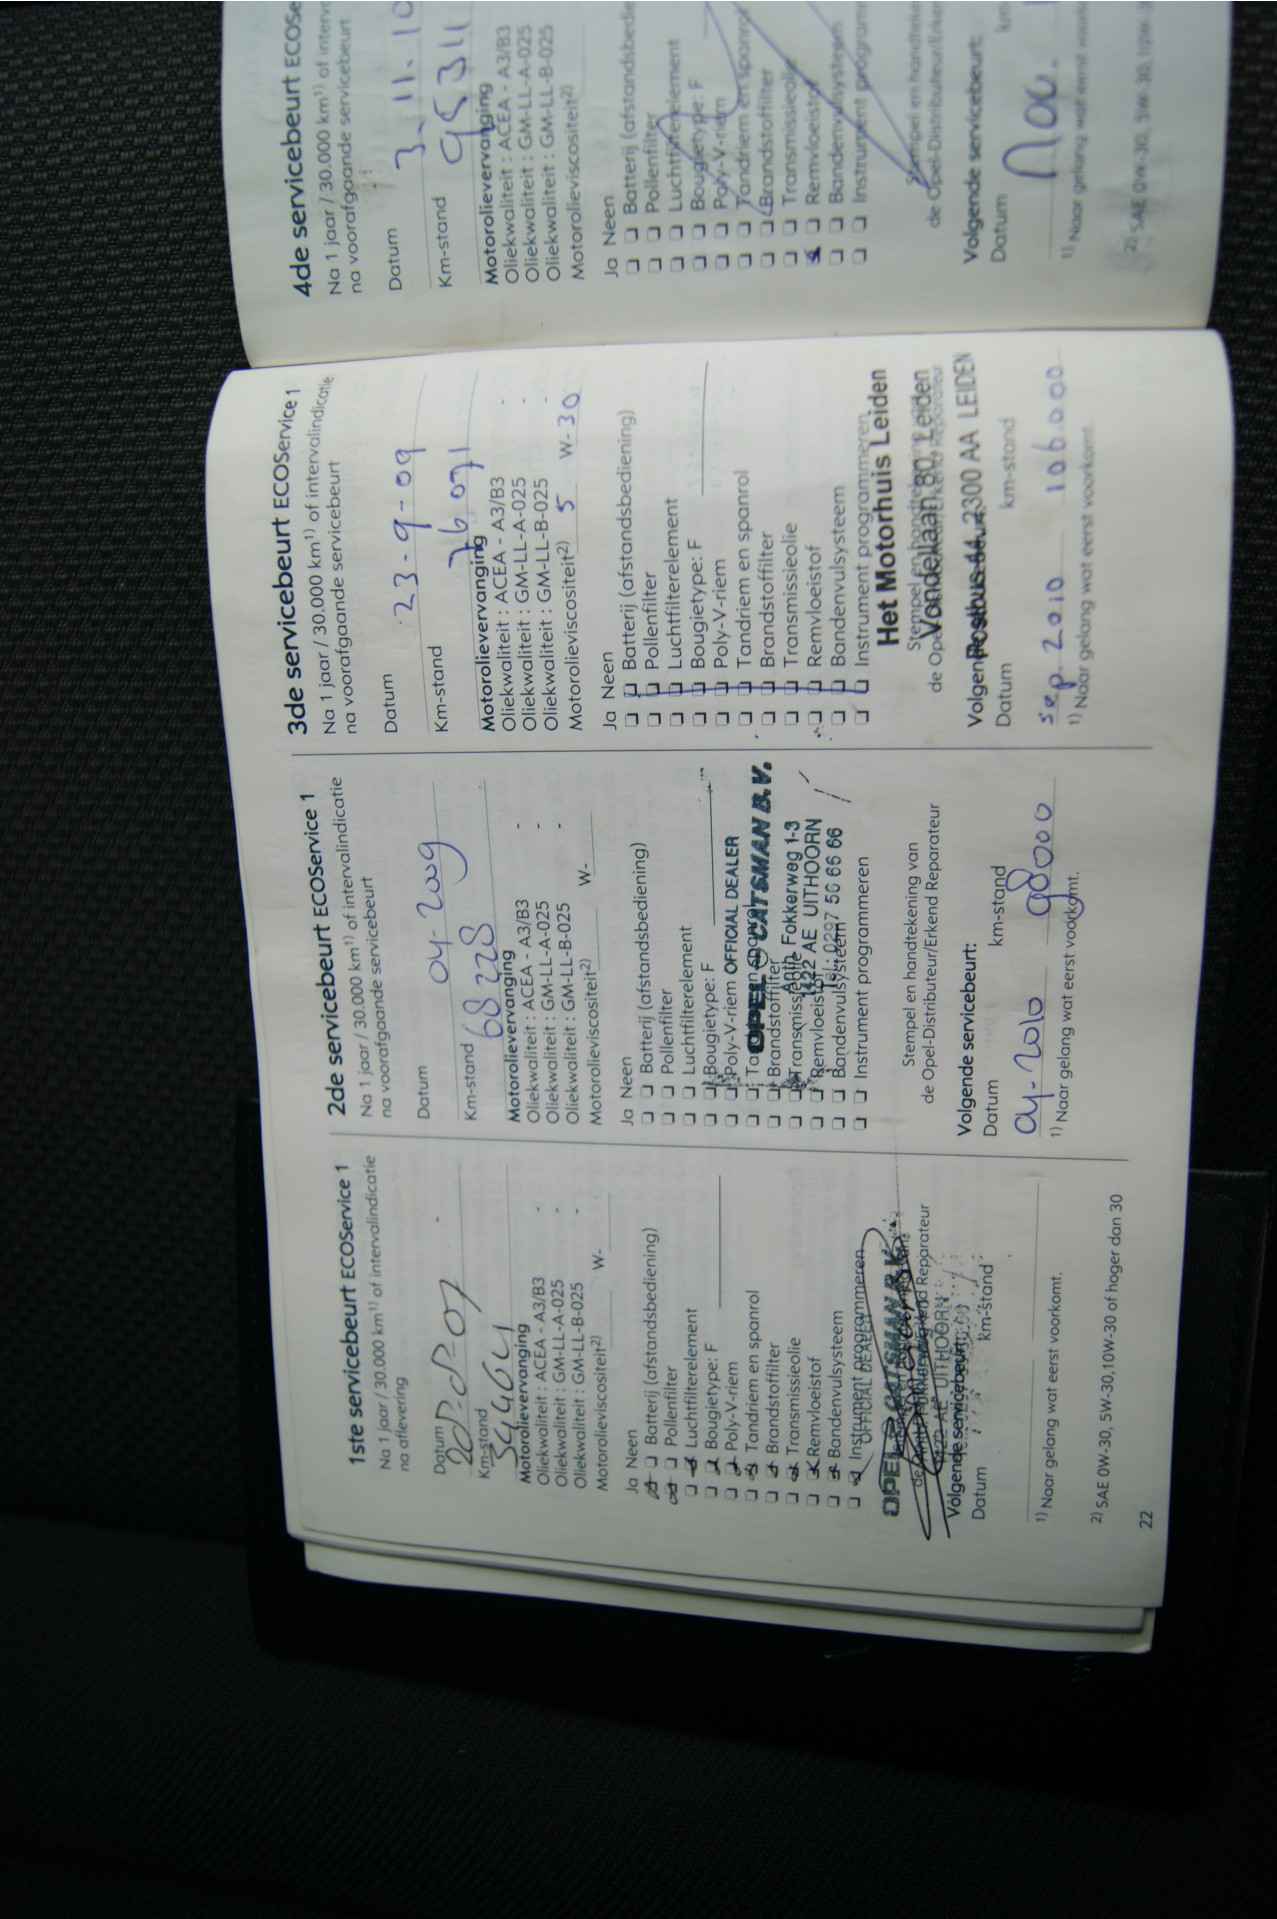 1ste servicebeurt ECOService 1
Na 1 jaar / 30.000 km1) of intervalindicatie
na aflevering
Datum
Km-stand
34464
Motorolievervanging
Oliekwaliteit : ACEA - A3/B3 -
Oliekwaliteit : GM-LL-A-025 -
Oliekwaliteit : GM-LL-B-025 -
Motorolieviscositeit2) W-
Ja Neen
Batterij (afstandsbediening)
Pollenfilter
Luchtfilterelement
Bougietype: F
Poly-V-riem
Tandriem en spanrol
Brandstoffilter
Transmissieolie
Remvloeistof
Bandenvulsysteem
Instrument programmeren
OFFICIAL DEALER
OPEL CATSMAN B.V.
Reparateur
AE UITHOORN
Volgende servicebeurt:
Datum km-stand
1) Naar gelang wat eerst voorkomt.
2) SAE 0W-30, 5W-30,10W-30 of hoger dan 30
22
2de servicebeurt ECOService 1
Na 1 jaar / 30.000 km1) of intervalindicatie
na voorafgaande servicebeurt
Datum 04-2009
Km-stand 68 228
Motorolievervanging
Oliekwaliteit : ACEA - A3/B3 -
Oliekwaliteit : GM-LL-A-025 -
Oliekwaliteit : GM-LL-B-025 -
Motorolieviscositeit2) W-
Ja Neen
Batterij (afstandsbediening)
Pollenfilter
Luchtfilterelement
Bougietype: F
Poly-V-riem OFFICIAL DEALER
OPEL CATSMAN B.V.
Brandstoffilter Anth Fokkerweg 1-3
Transmissieolie 1422 AE UITHOORN
Remvloeistof Tel: 0297 56 66 66
Bandenvulsysteem
Instrument programmeren
Stempel en handtekening van
de Opel-Distributeur/Erkend Reparateur
Volgende servicebeurt:
Datum km-stand
04-2010 98000
1) Naar gelang wat eerst voorkomt.
3de servicebeurt ECOService 1
Na 1 jaar / 30.000 km1) of intervalindicatie
na voorafgaande servicebeurt
Datum 23-9-09
Km-stand 76 071
Motorolievervanging
Oliekwaliteit : ACEA - A3/B3 -
Oliekwaliteit : GM-LL-A-025 -
Oliekwaliteit : GM-LL-B-025 -
Motorolieviscositeit2) 5 W-30
Ja Neen
Batterij (afstandsbediening)
Pollenfilter
Luchtfilterelement
Bougietype: F
Poly-V-riem
Tandriem en spanrol
Brandstoffilter
Transmissieolie
Remvloeistof
Bandenvulsysteem
Instrument programmeren
Het Motorhuis Leiden
Stempel en
Vondellaan 80, Leiden
Postbus 44, 2300 AA LEIDEN
Datum km-stand
sep. 2010 106.000
1) Naar gelang wat eerst voorkomt.
4de servicebeurt ECOSe
Na 1 jaar / 30.000 km1) of interv
na voorafgaande servicebeurt
Datum 3.11.10
Km-stand 95311
Motorolievervanging
Oliekwaliteit : ACEA - A3/B3
Oliekwaliteit : GM-LL-A-025
Oliekwaliteit : GM-LL-B-025
Motorolieviscositeit2)
Ja Neen
Batterij (afstandsbedie
Pollenfilter
Luchtfilterelement
Bougietype: F
Poly-V-riem
Tandriem en spanrol
Brandstoffilter
Transmissieolie
Remvloeistof
Bandenvulsysteem
Instrument programm
Stempel en handteken
de Opel-Distributeur/Erken
Volgende servicebeurt:
Datum km
nov.
1) Naar gelang wat eerst voork
2) SAE 0W-30, 5W-30, 10W-